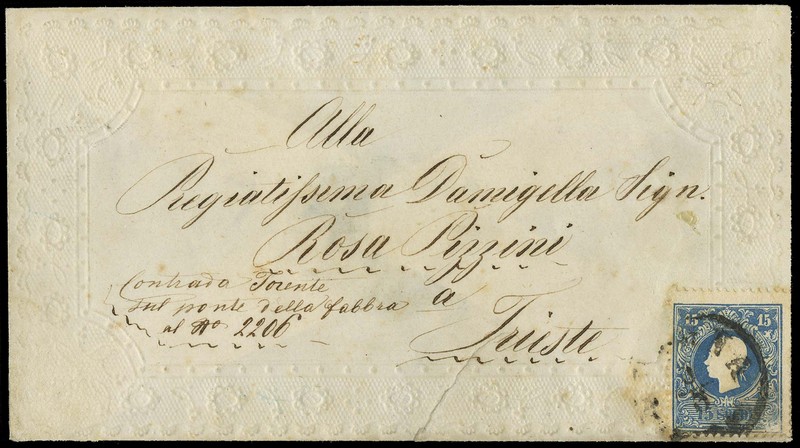 Alla
Pregiatissima Damigella Sign.
Rosa Pizzini
a
Trieste
Contrada Torente
sul ponte della fabbra
al No 2206
15 15
15 SOLDI